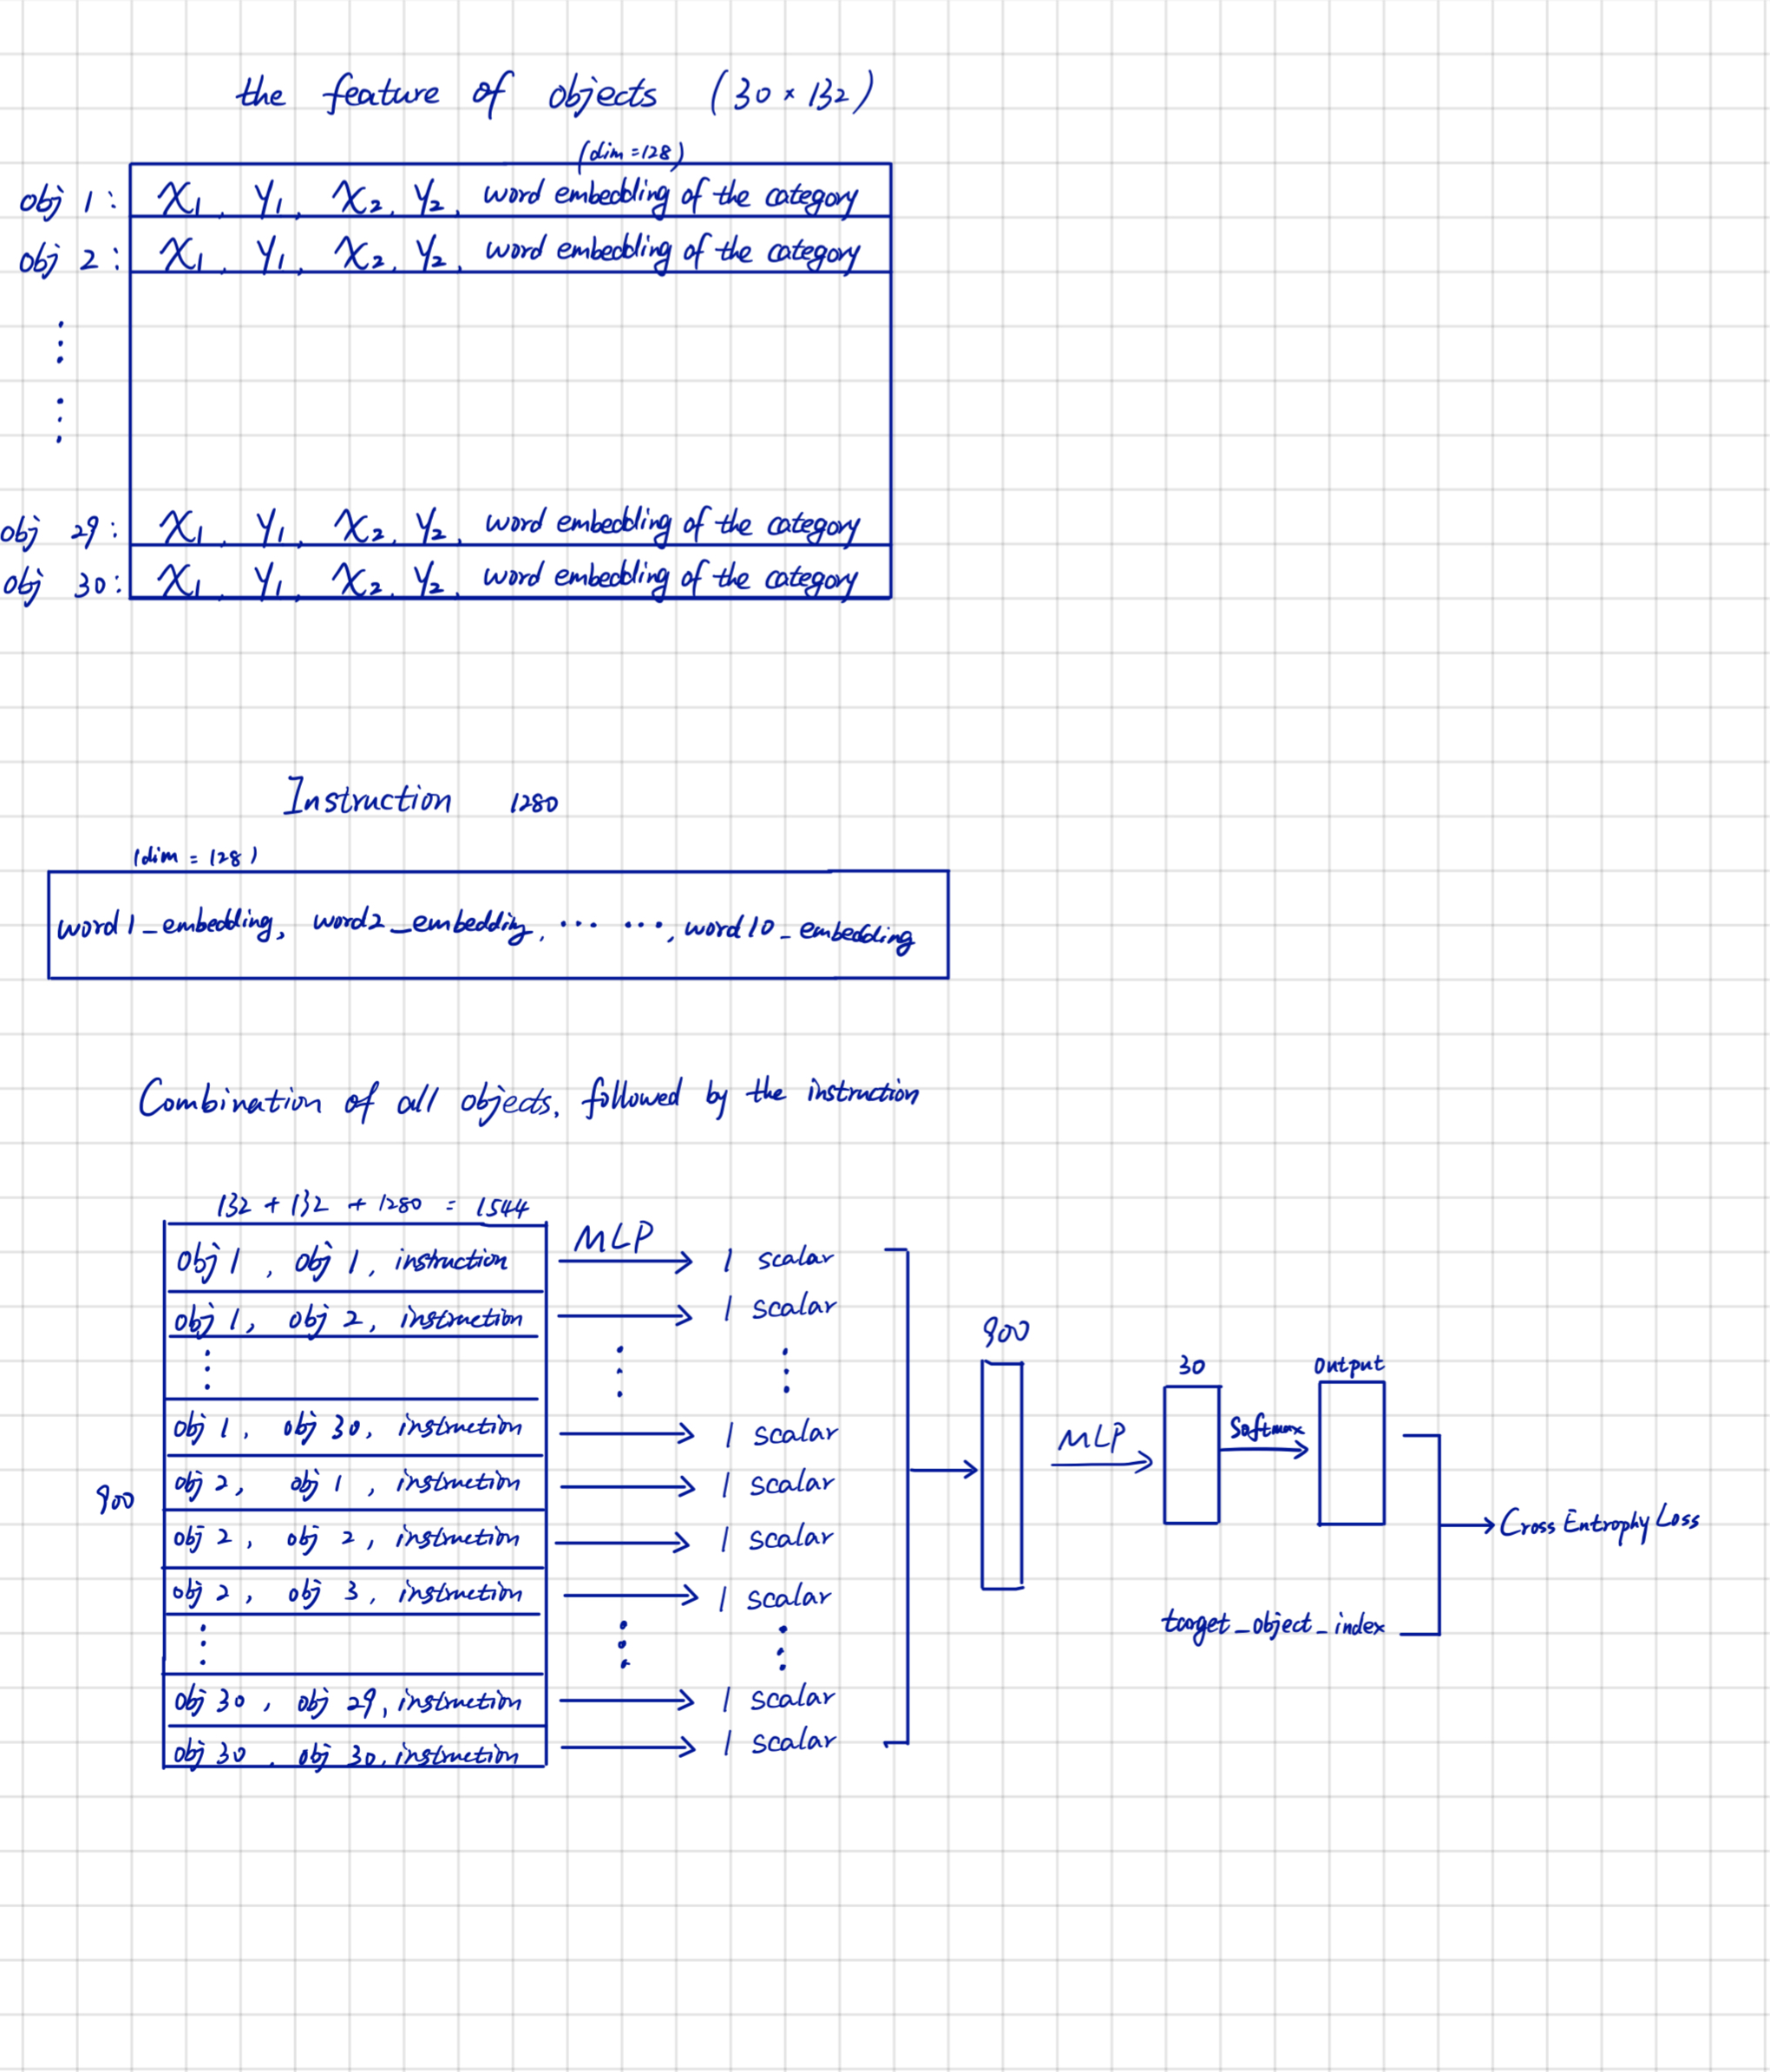 the feature of objects (30 × 132)
(dim = 128)
obj 1: X1, Y1, X2, Y2, word embedding of the category
obj 2: X1, Y1, X2, Y2, word embedding of the category
obj 29: X1, Y1, X2, Y2, word embedding of the category
obj 30: X1, Y1, X2, Y2, word embedding of the category
Instruction 1280
(dim = 128)
word1_embedding, word2_embedding, ... ..., word10_embedding
Combination of all objects, followed by the instruction
132 + 132 + 1280 = 1544
MLP
obj 1, obj 1, instruction 1 scalar
obj 1, obj 2, instruction 1 scalar
obj 1, obj 30, instruction 1 scalar
obj 2, obj 1, instruction 1 scalar
900
obj 2, obj 2, instruction 1 scalar
obj 2, obj 3, instruction 1 scalar
obj 30, obj 29, instruction 1 scalar
obj 30, obj 30, instruction 1 scalar
900
MLP
30
Softmax
output
target_object_index
Cross Entrophy Loss